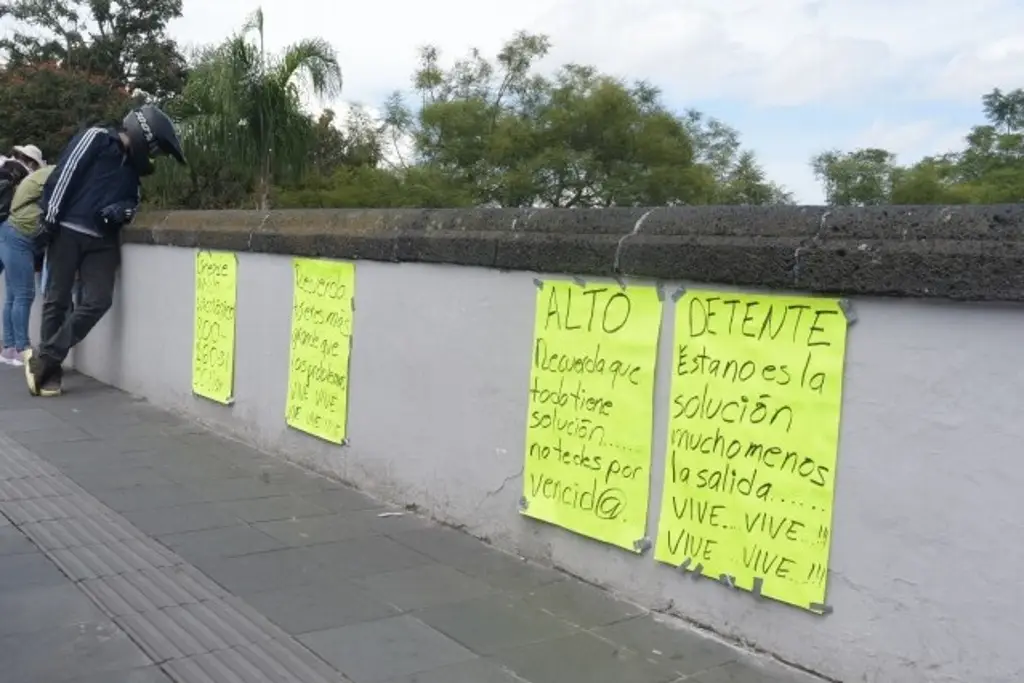 800
Recuerda
tu eres más
grande que
los problemas
VIVE VIVE
VIVE VIVE VIVE
ALTO
Recuerda que
todo tiene
solución......
no te des por
vencid@.
DETENTE
Esta no es la
solución
mucho menos
la salida......
VIVE... VIVE..!!!
VIVE ... VIVE...!!!